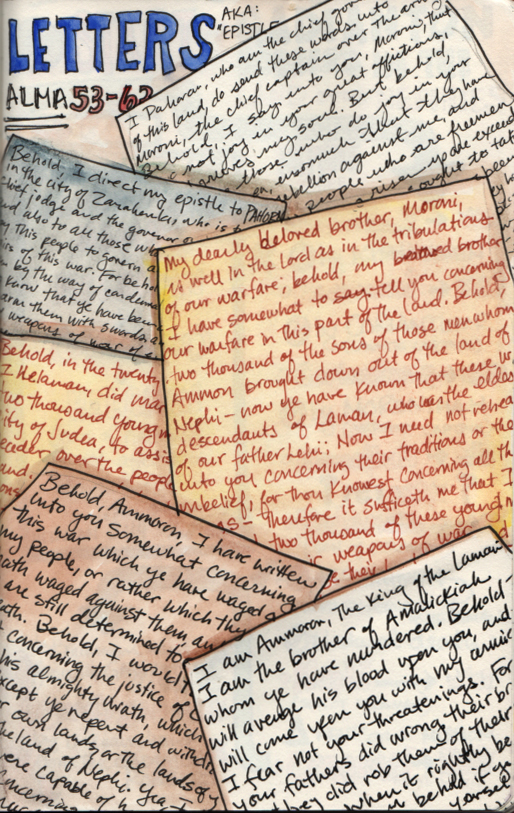 LETTERS
AKA:
"EPISTLE
ALMA 53-62
I Pahoran, who am the chief gov
of this land, do send these words unto
Moroni, the chief captain over the army
Behold, I say unto you, Moroni, that
not joy in your great afflictions,
my soul. But behold,
those who do joy in your
insomuch that they have
bellion against me, and
people who are freemen
exceed
sought to take
Behold, I direct my epistle to PAHORAN
in the city of Zarahemla, who is the
chief judge and the governor
and also to all those who
by this people to govern a
irs of this war. For behold
by the way of condem
know that ye have been
arm them with swords a
weapons of war of
My dearly beloved brother, Moroni,
as well in the lord as in the tribulations
of our warfare; behold, my brother
I have somewhat to say tell you concerning
our warfare in this part of the land. Behold,
two thousand of the sons of those men whom
Ammon brought down out of the land of
Nephi - now ye have known that these w
descendants of Laman, who was the eldes
of our father Lehi; Now I need not rehea
unto you concerning their traditions or the
unbelief, for thou knowest concerning all th
- Therefore it sufficeth me that I
two thousand of these young m
weapons of war
Behold, in the twenty
I Helaman, did mar
two thousand young m
ity of Judea, to assis
eader over the people
Behold, Ammoron, I have written
unto you somewhat concerning
this war which ye have waged
my people, or rather which thy
hath waged against them an
are still determined to
ath. Behold, I would
concerning the justice of G
his almighty wrath, which
xcept ye repent and withdr
r own lands, or the lands of y
he land of Nephi. Yea, I
ere capable of h
I am Ammoron, The King of the Laman
I am the brother of Amalickiah
whom ye have murdered. Behold -
will avenge his blood upon you, and
will come upon you with my armie
I fear not your threatenings. For
your fathers did wrong their br
they did rob them of their
when it rightly be
behold if ye